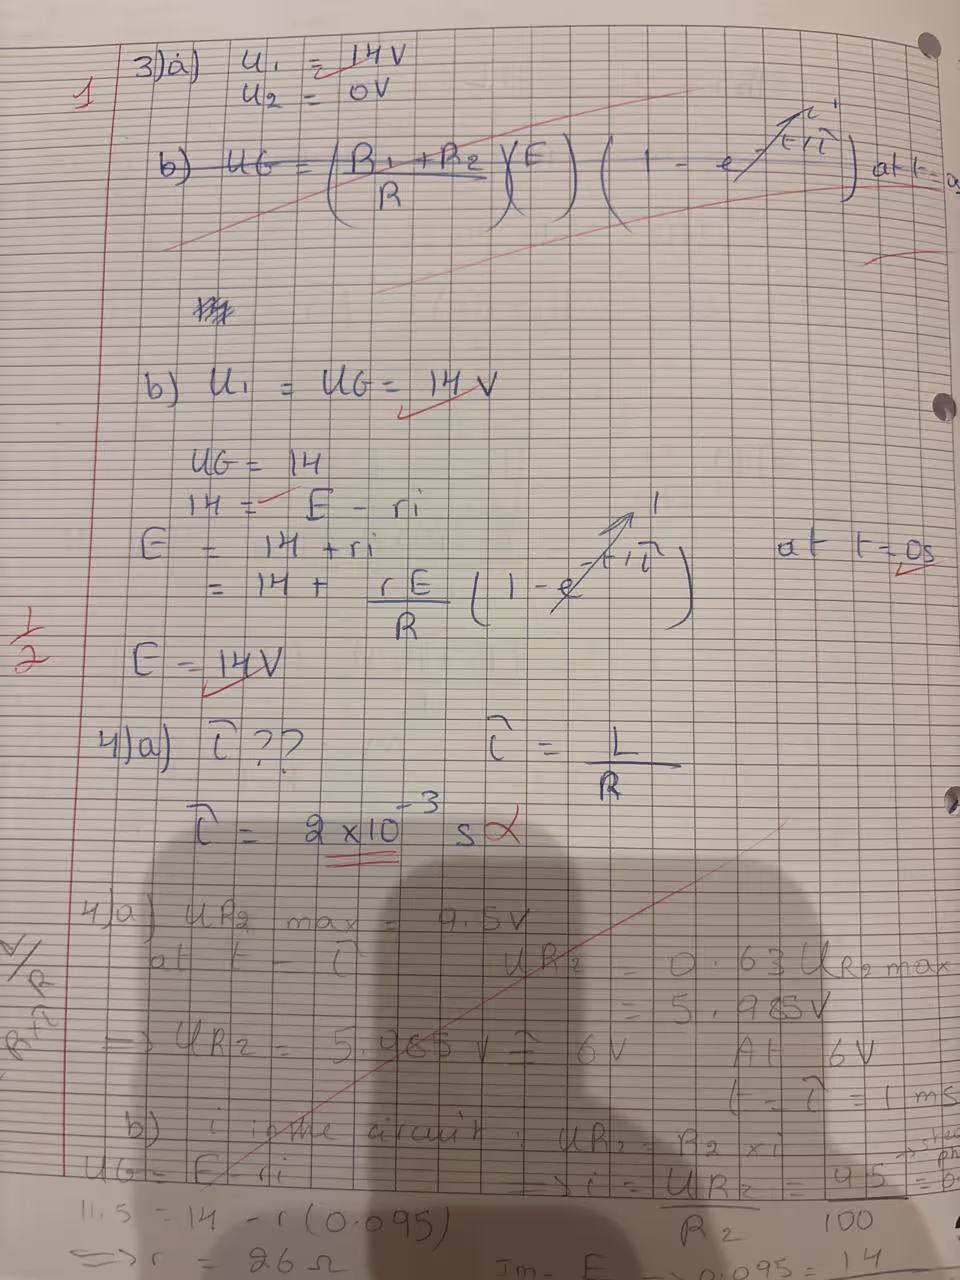 3)a) U1 = 14V
1
U2 = 0V
b) UG = (R1 + R2 / R)(E) (1 - e^-t/τ) at t =
1
b) U1 = UG = 14V
UG = 14
14 = E - ri
E = 14 + ri at t = 0s
= 14 + rE/R (1 - e^-t/τ)
1
1/2
E = 14V
4)a) τ ?? τ = L/R
τ = 2 x 10^-3 s
4)a) UR2 max = 9.5V
at t = τ UR2 = 0.63 UR2 max
= 5.985V
=> UR2 = 5.985 V = 6V At 6V
t = τ = 1 ms
b) i in the circuit : UR2 = R2 x i
UG = E - ri => i = UR2/R2 = 9.5/100 = 0.
11.5 = 14 - r(0.095)
=> r = 26 Ω Im = E => 0.095 = 14